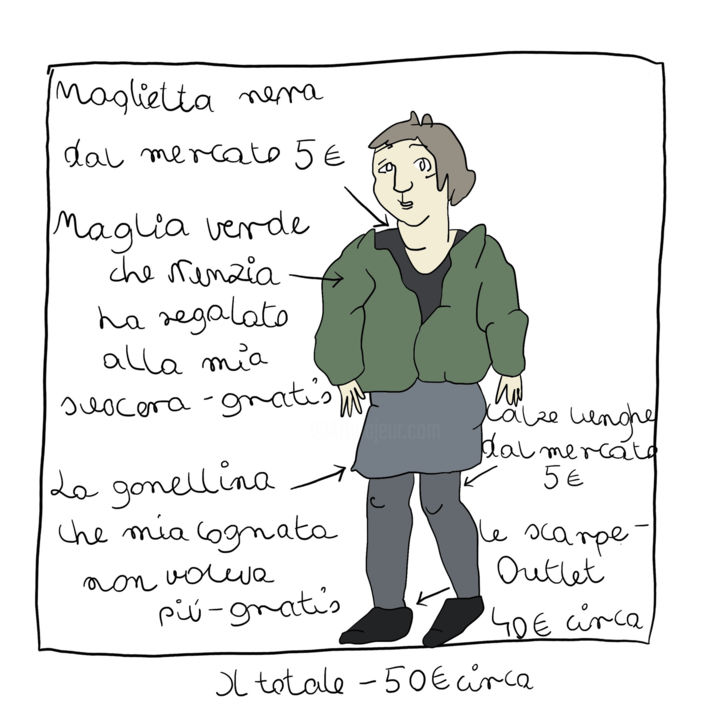 Maglietta nera
dal mercato 5€
Maglia verde
che Nunzia
ha regalato
alla mia
suocera - gratis
La gonellina
che mia cognata
non voleva
più - gratis
Calze lunghe
dal mercato
5€
Le scarpe -
Outlet
40€ circa
Il totale - 50€ circa